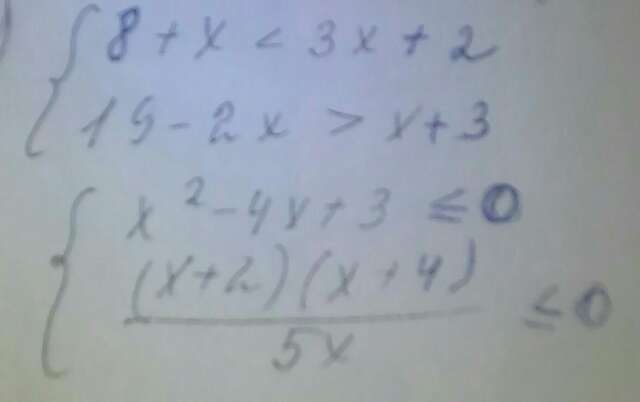 8 + x < 3x + 2
15 - 2x > x + 3
x² - 4x + 3 ≤ 0
(x+2)(x+4)
5x
≤ 0